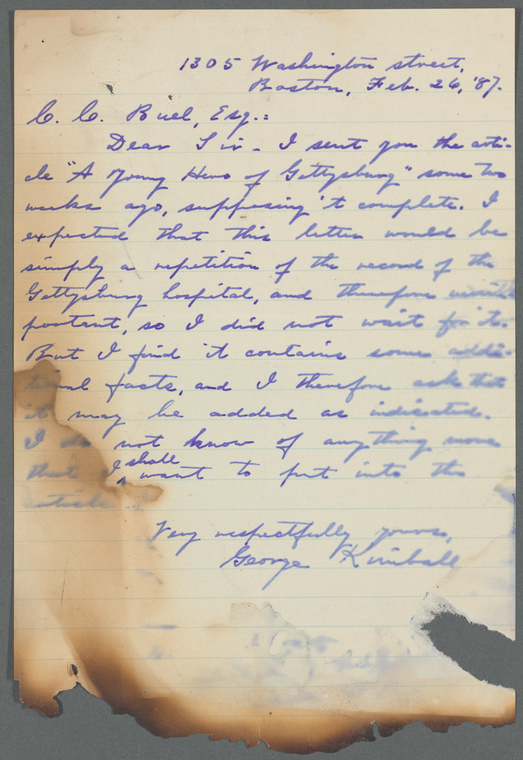 1305 Washington street,
Boston, Feb. 26, '87.
C. C. Buel, Esq.:
Dear Sir - I sent you the arti-
cle "A Young Hero of Gettysburg" some two
weeks ago, supposing it complete. I
expected that this letter would be
simply a repetition of the record of the
Gettysburg hospital, and therefore unim-
portant, so I did not wait for it.
But I find it contains some addi-
tional facts, and I therefore ask that
it may be added as indicated.
I do not know of anything more
that I shall want to put into the
article.
Very respectfully yours,
George Kimball